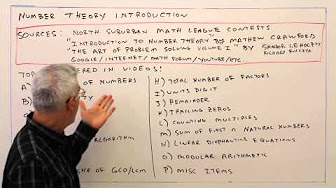 NUMBER THEORY INTRODUCTION
SOURCES: NORTH SUBURBAN MATH LEAGUE CONTESTS
"INTRODUCTION TO NUMBER THEORY" BY MATHEW CRAWFORD
"THE ART OF PROBLEM SOLVING VOLUME I" BY SANDOR LEHOCZKY
RICHARD RUSCZYK
GOOGLE/INTERNET/MATH FORUM/YOUTUBE/ETC.
IN VIDEOS:
OF NUMBERS
ALGORITHM
OF GCD/LCM
H) TOTAL NUMBER OF FACTORS
I) UNITS DIGIT
J) REMAINDER
K) TRAILING ZEROS
L) COUNTING MULTIPLES
M) SUM OF FIRST n NATURAL NUMBERS
N) LINEAR DIOPHANTINE EQUATIONS
O) MODULAR ARITHMETIC
P) MISC ITEMS